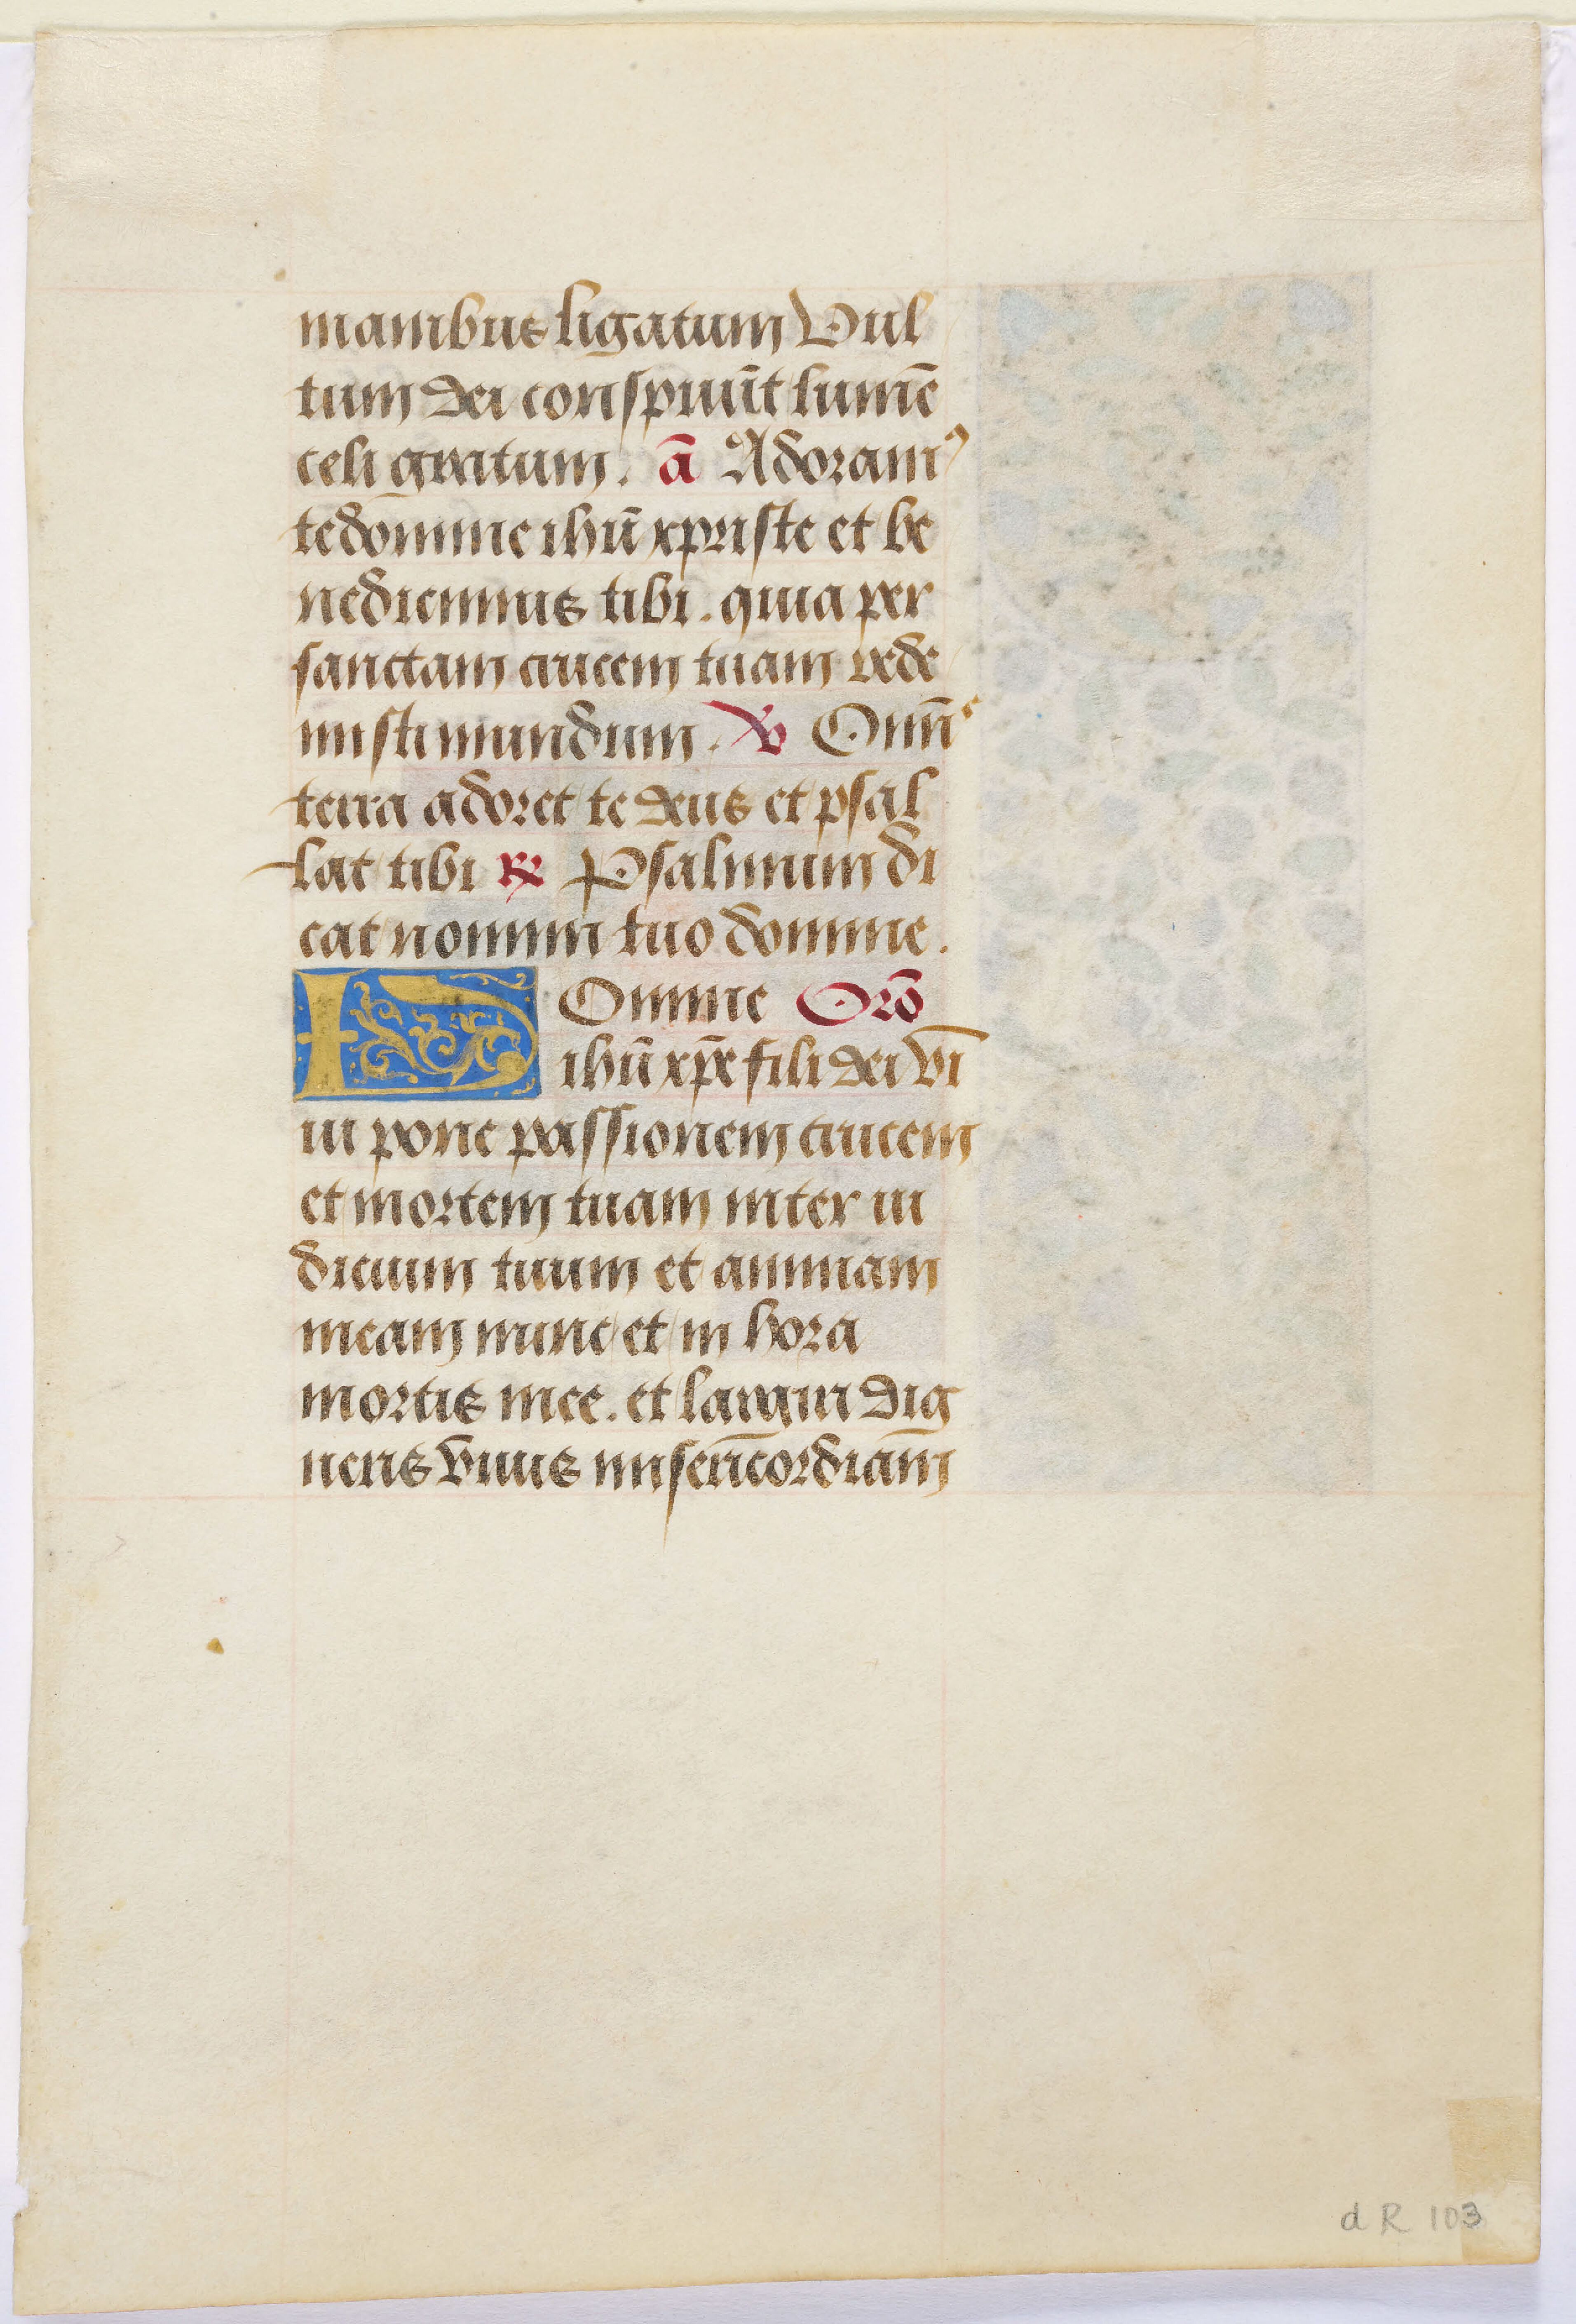 manibus ligatum Vul
tum dei conspuūt lumē
celi gratum. ā Adoramꝰ
te domine ihū xp̄riste et be
nedicimus tibi. quia per
sanctam crucem tuam rede
misti mundum. ℣ Omīs
terra adoret te deus et psal
lat tibi ℟ Psalmum di
cat nomini tuo domine.
Domine Orō
ihū xp̄e fili dei vi
ui pone passionem crucem
et mortem tuam inter iu
dicium tuum et animam
meam nunc et in hora
mortis mee. et largiri dig
neris viuis misericordiam
d R 103